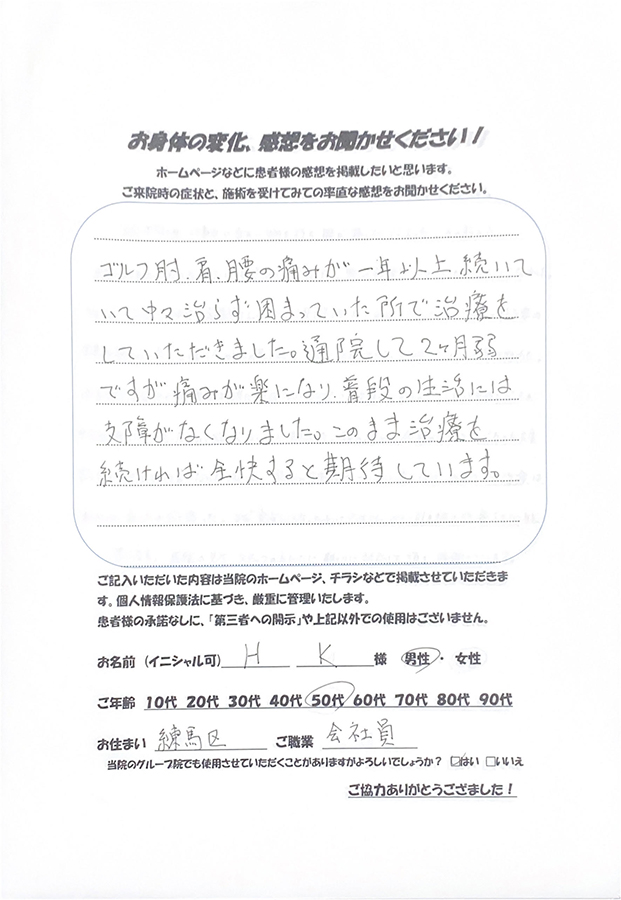 お身体の変化、感想をお聞かせください！
ホームページなどに患者様の感想を掲載したいと思います。
ご来院時の症状と、施術を受けてみての率直な感想をお聞かせください。
ゴルフ肘、肩、腰の痛みが一年以上続いて
いて中々治らず困まっていた所で治療を
していただきました。通院して2ヶ月弱
ですが痛みが楽になり、普段の生活には
支障がなくなりました。このまま治療を
続ければ全快すると期待しています。
ご記入いただいた内容は当院のホームページ、チラシなどで掲載させていただきま
す。個人情報保護法に基づき、厳重に管理いたします。
患者様の承諾なしに、「第三者への開示」や上記以外での使用はございません。
お名前（イニシャル可） H K 様 男性・女性
ご年齢 10代 20代 30代 40代 50代 60代 70代 80代 90代
お住まい 練馬区 ご職業 会社員
当院のグループ院でも使用させていただくことがありますがよろしいでしょうか？ ☑はい □いいえ
ご協力ありがとうござました！